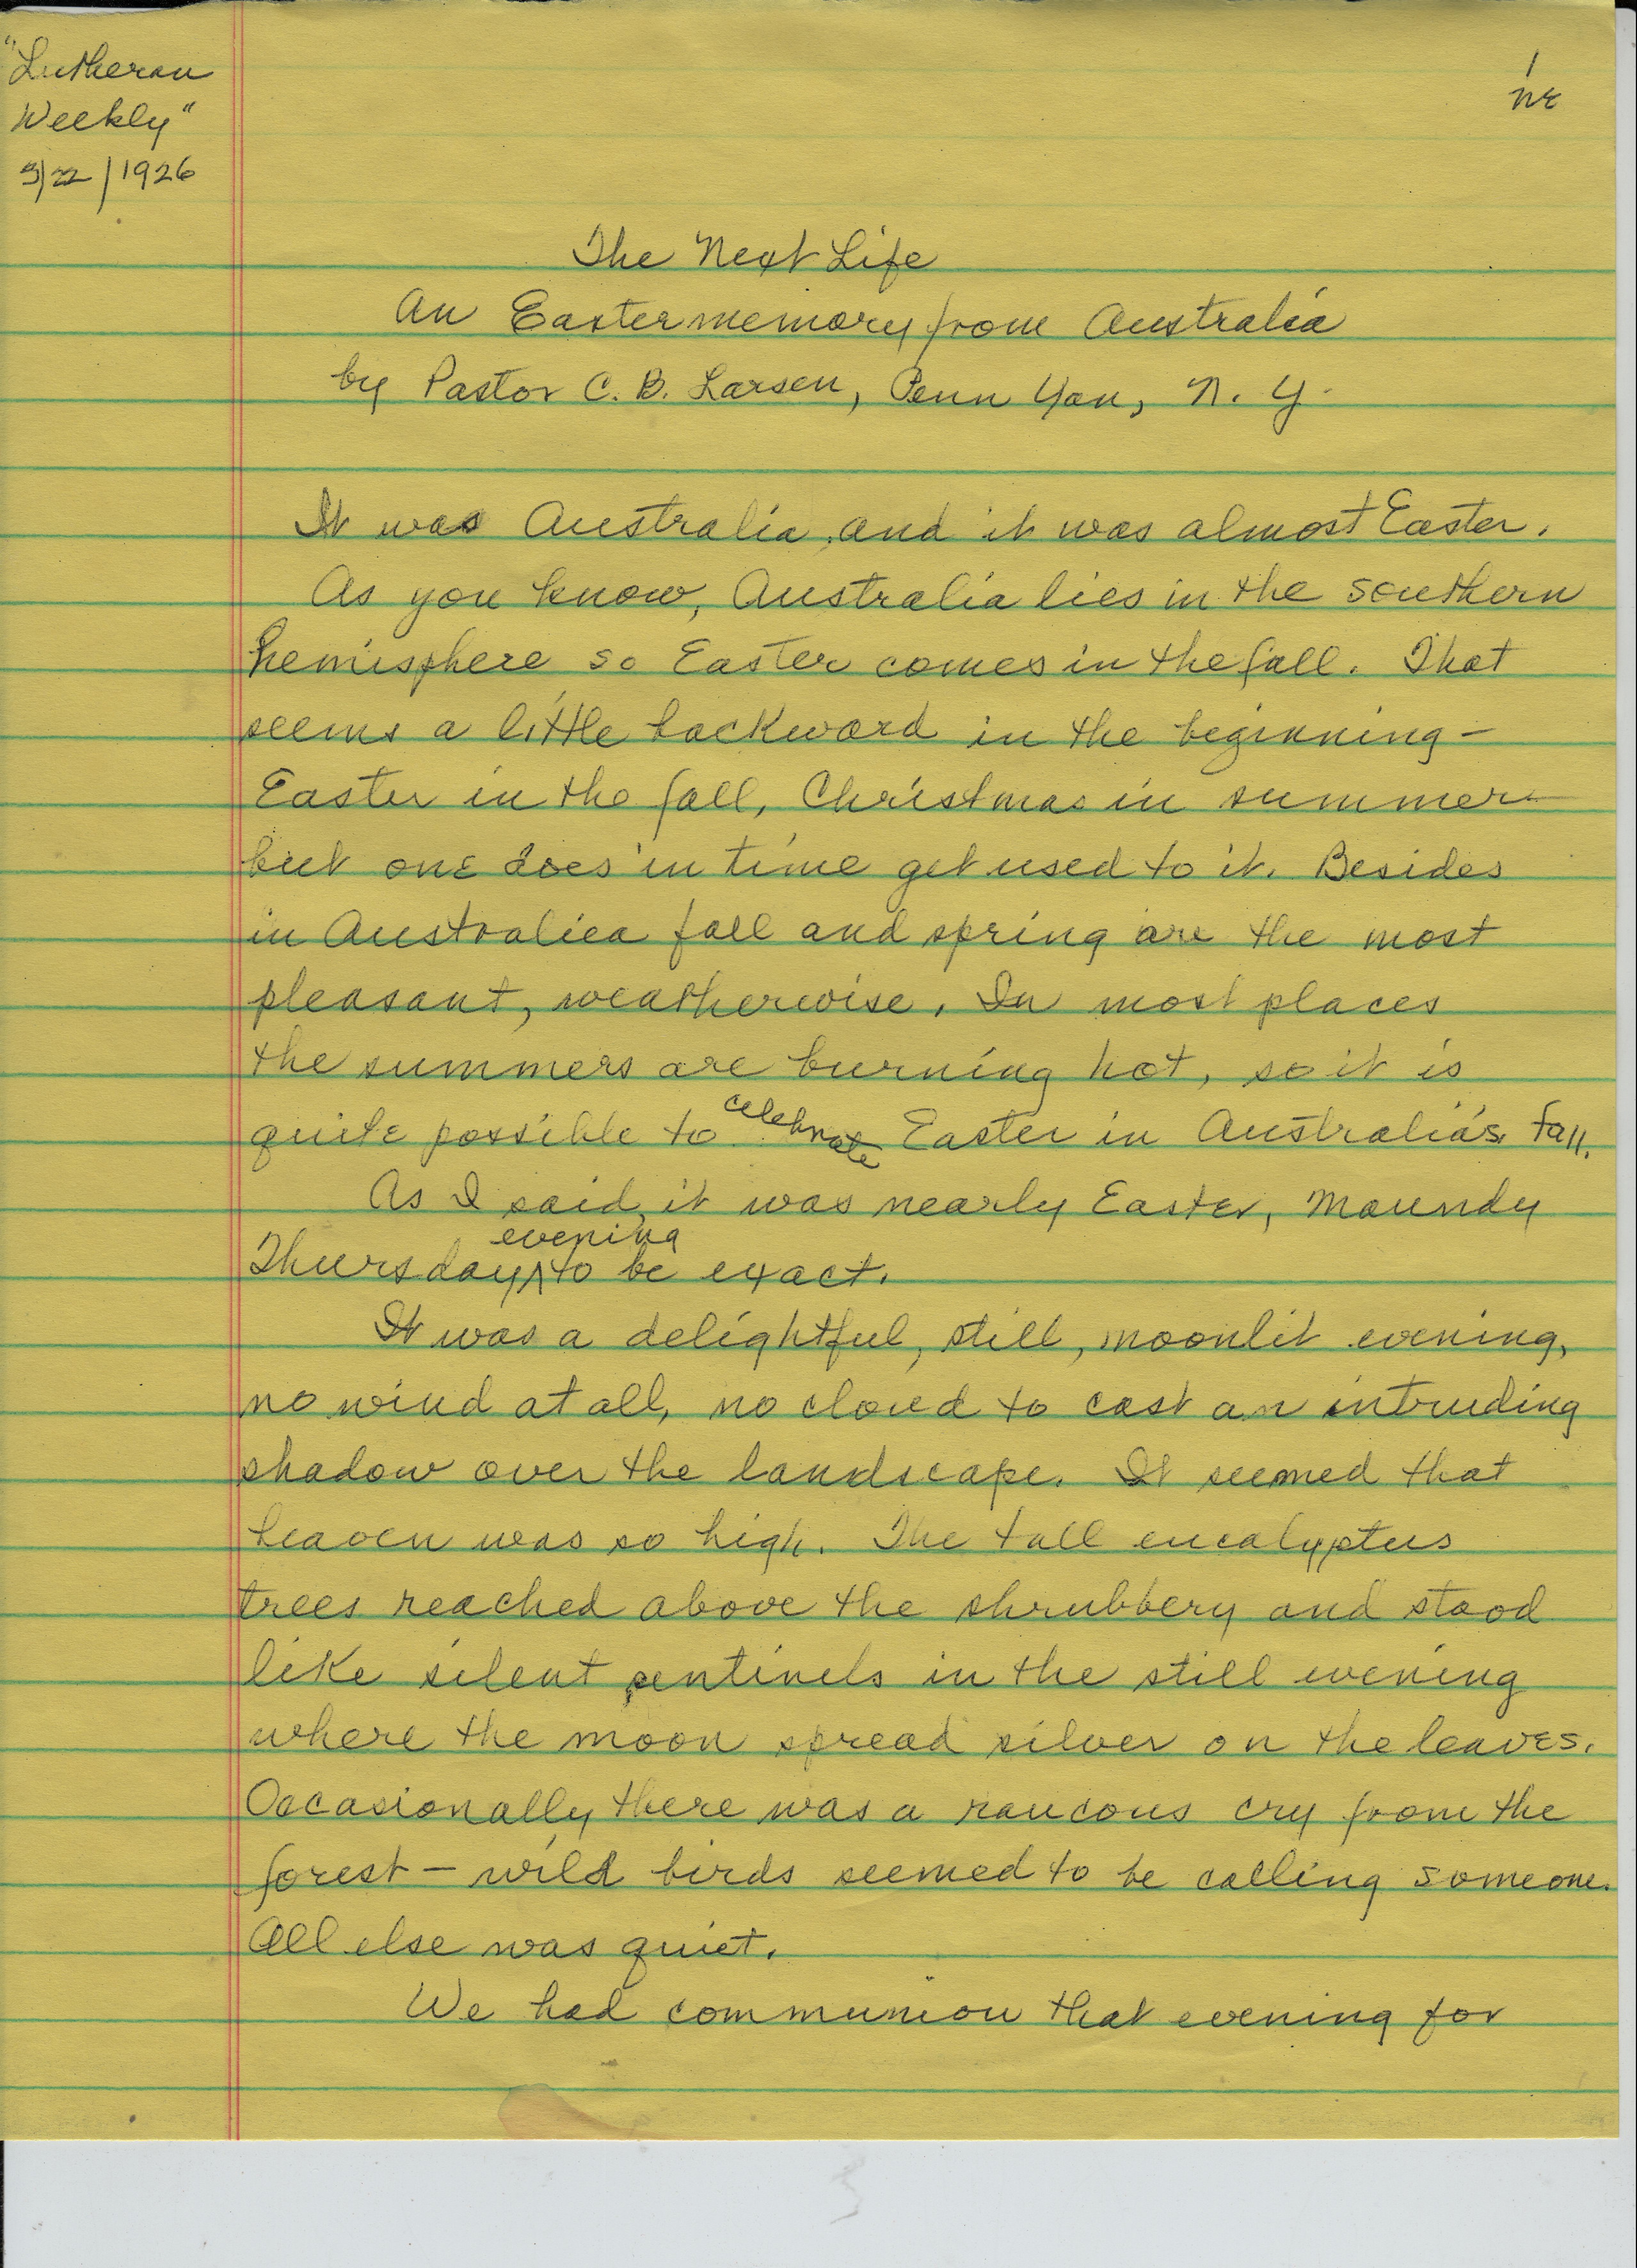 "Lutheran
Weekly"
3/22/1926
1
The Next Life
An Easter memory from Australia
by Pastor C. B. Larsen, Penn Yan, N. Y.
It was Australia and it was almost Easter.
As you know, Australia lies in the southern
hemisphere so Easter comes in the fall. That
seems a little backward in the beginning -
Easter in the fall, Christmas in summer -
but one does in time get used to it. Besides
in Australiea fall and spring are the most
pleasant, weatherwise. In most places
the summers are burning hot, so it is
quite possible to celebrate Easter in Australia's fall.
As I said, it was nearly Easter, Maundy
Thursday evening to be exact.
It was a delightful, still, moonlit evening,
no wind at all, no cloud to cast an intruding
shadow over the landscape. It seemed that
heaven was so high. The tall eucalyptus
trees reached above the shrubbery and stood
like silent sentinels in the still evening
where the moon spread silver on the leaves.
Occasionally there was a raucous cry from the
forest - wild birds seemed to be calling someone.
All else was quiet.
We had communion that evening for